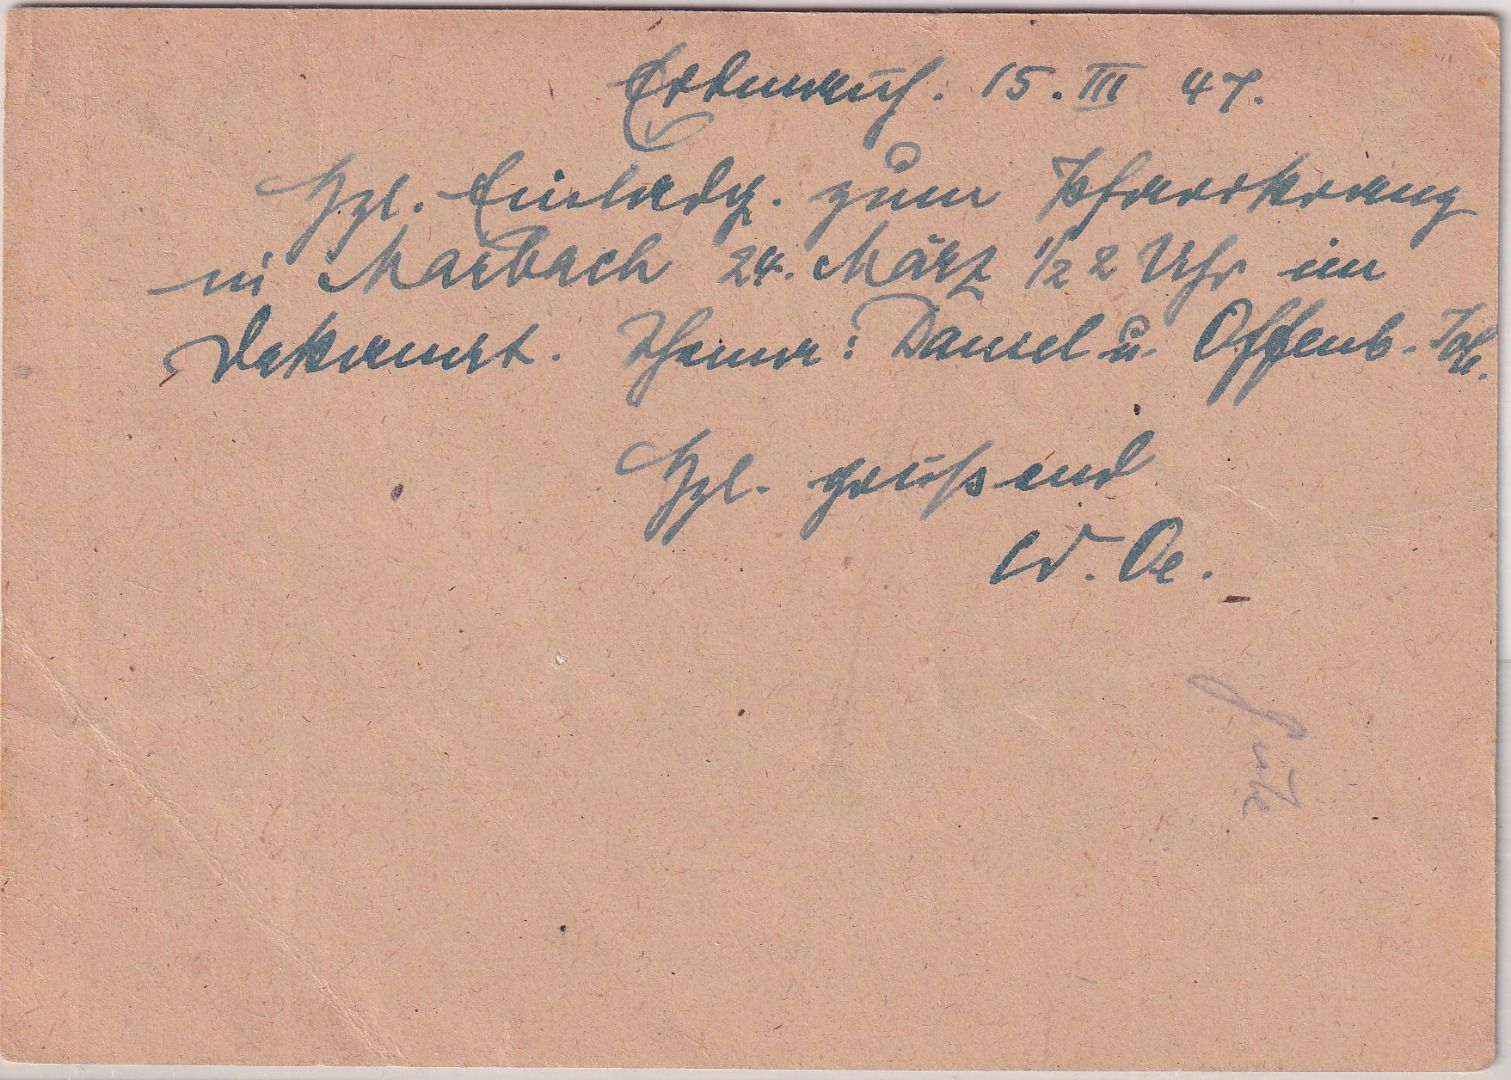 Erdmannh. 15. III 47.
Hzl. Einladg. zum Pfarrkranz
in Marbach 24. März 1/2 2 Uhr im
Dekanat. Thema: Daniel u. Offenb. Joh.
Hzl. grüßend
Oe.